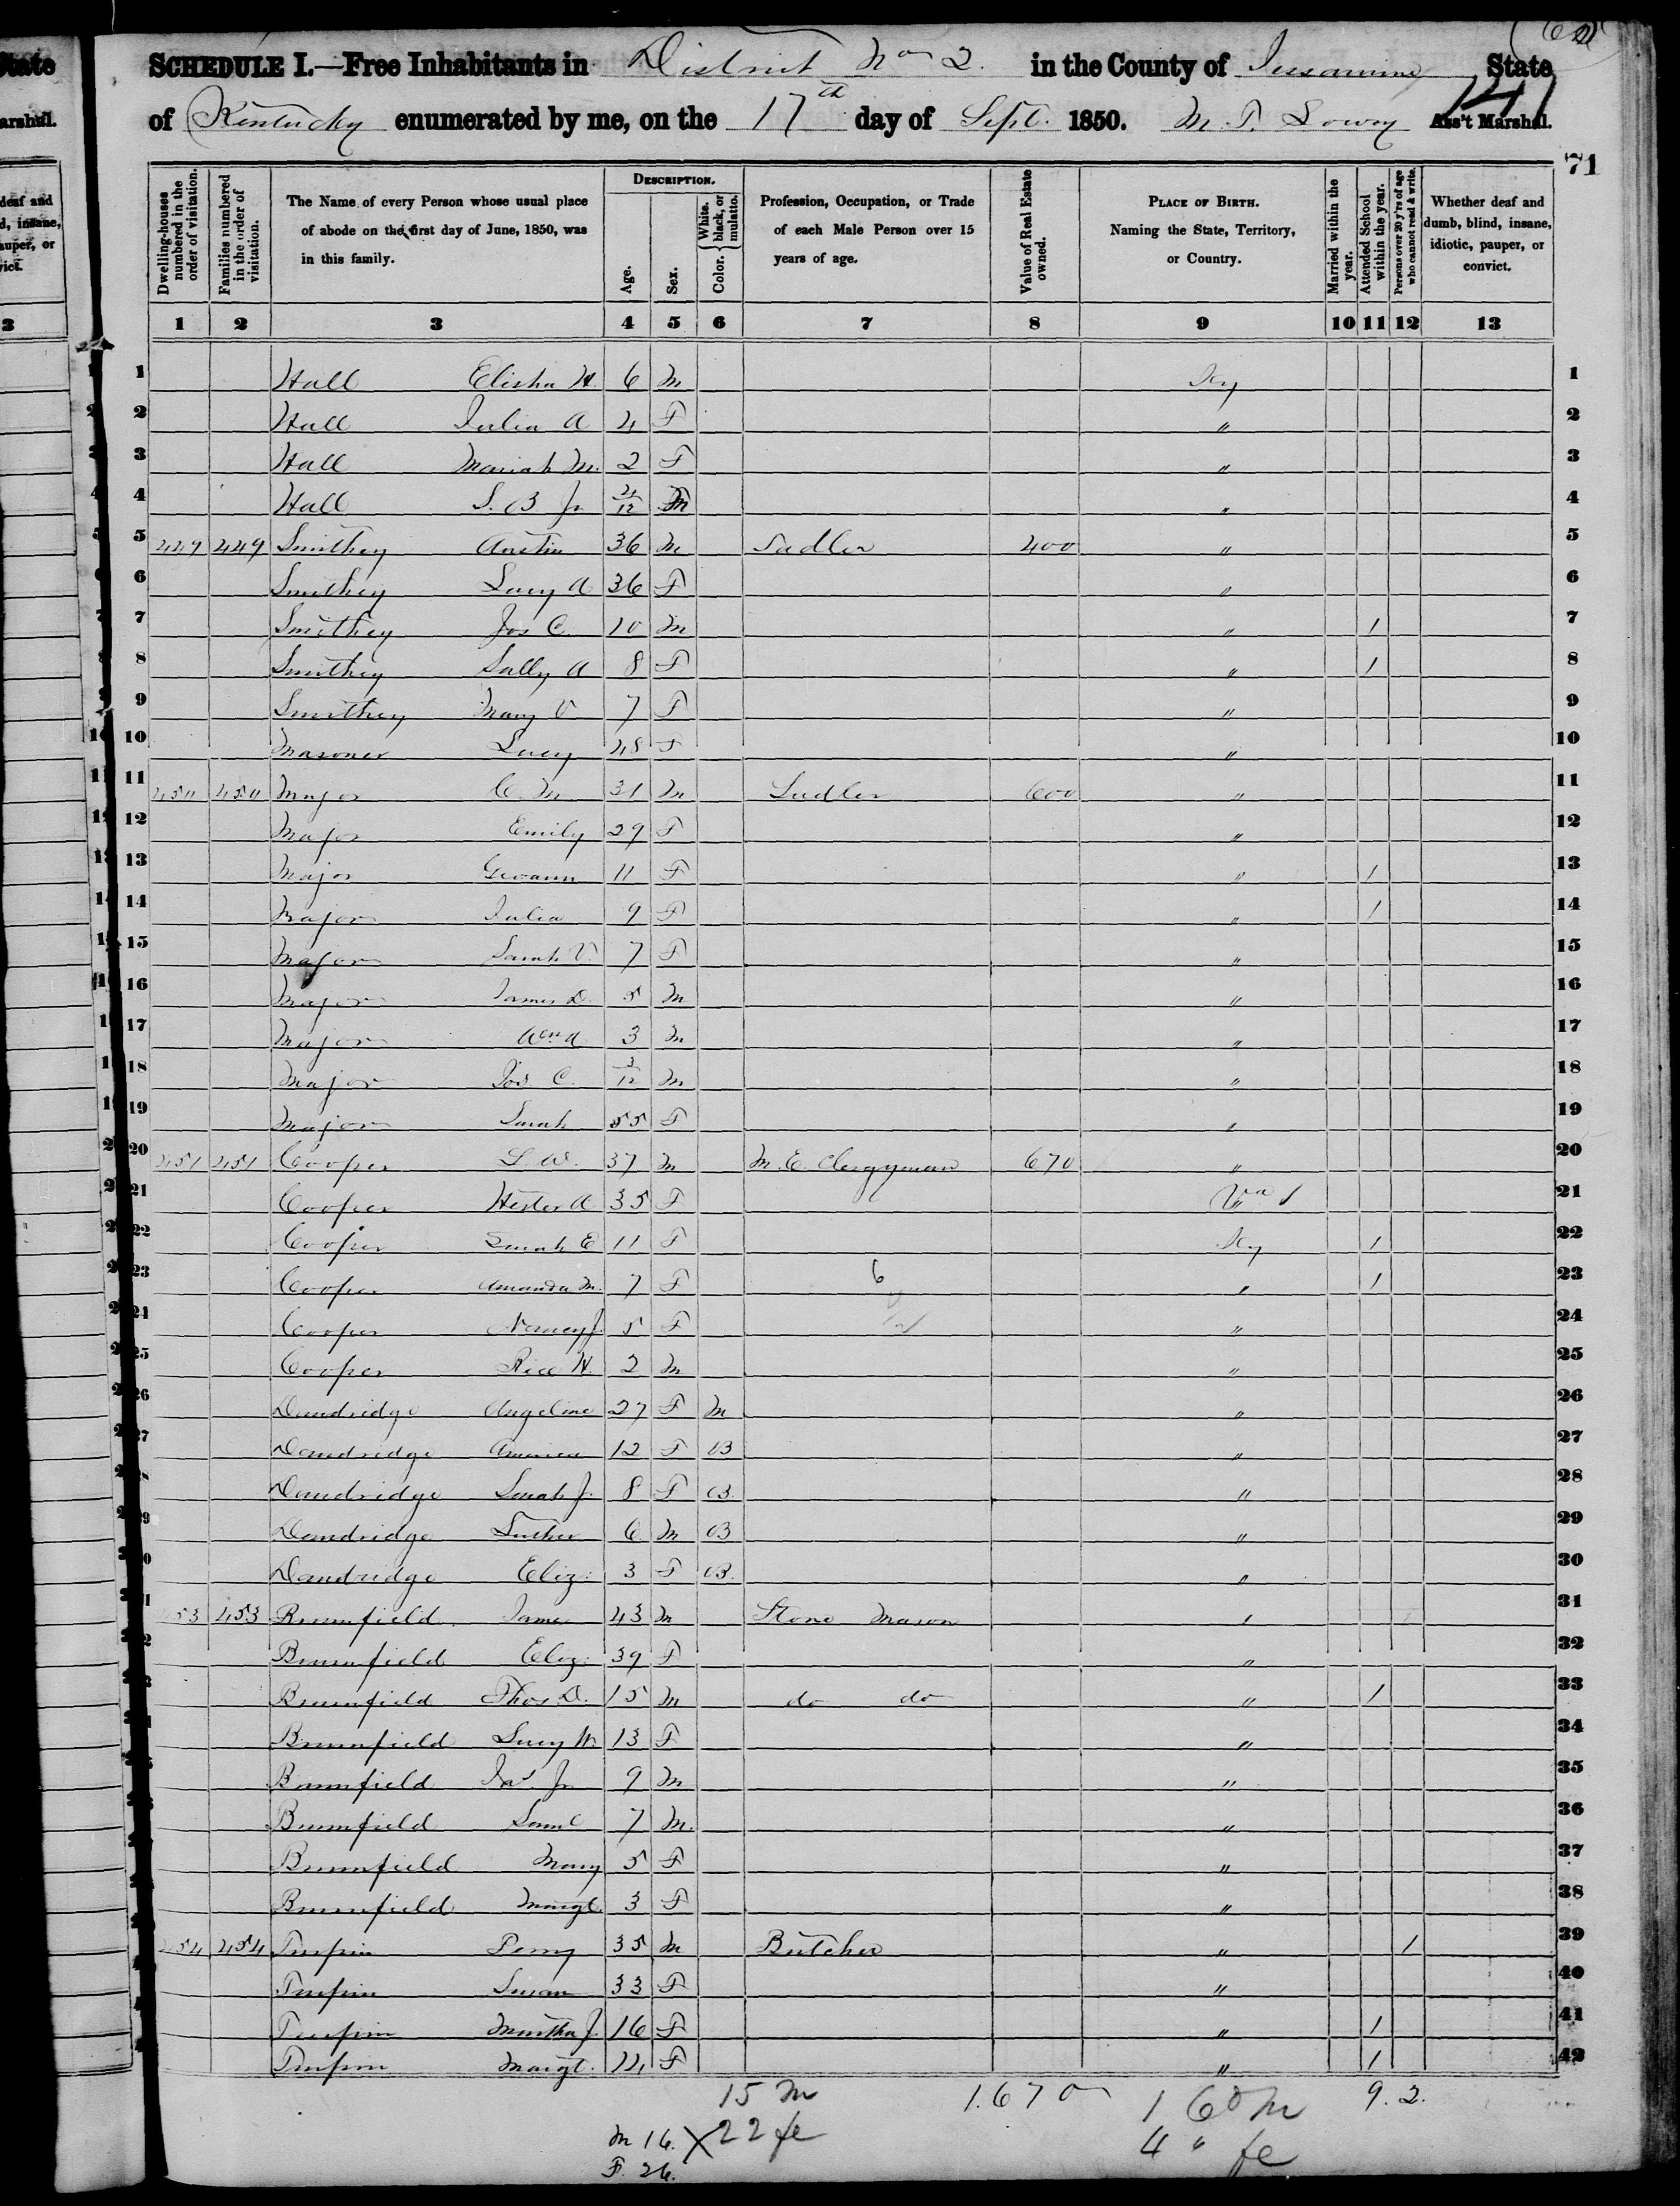 State
SCHEDULE I.—Free Inhabitants in District No 2. in the County of Jessamine State
141
arshal.
of Kentucky enumerated by me, on the 17th day of Sept. 1850. M. T. Lowry Ass't Marshal.
71
Dwelling-houses numbered in the order of visitation.
Families numbered in the order of visitation.
The Name of every Person whose usual place of abode on the first day of June, 1850, was in this family.
DESCRIPTION.
Age.
Sex.
Color. { White, black, or mulatto.
Profession, Occupation, or Trade of each Male Person over 15 years of age.
Value of Real Estate owned.
PLACE OF BIRTH. Naming the State, Territory, or Country.
Married within the year.
Attended School within the year.
Persons over 20 y'rs of age who cannot read & write.
Whether deaf and dumb, blind, insane, idiotic, pauper, or convict.
1 2 3 4 5 6 7 8 9 10 11 12 13
1 Hall Elisha H. 6 M Ky 1
2 Hall Julia A 4 F " 2
3 Hall Mariah M. 2 F " 3
4 Hall S. B Jr 4/12 M " 4
5 449 449 Smithey Austin 36 M Sadler 400 " 5
6 Smithey Lucy A 36 F " 6
7 Smithey Jos C. 10 M " 1 7
8 Smithey Sally A 8 F " 1 8
9 Smithey Mary V 7 F " 9
10 Masoner Lucy 48 F " 10
11 450 450 Major C. M. 31 M Sadler 600 " 11
12 Major Emily 29 F " 12
13 Major 11 F " 1 13
14 Major Julia 9 F " 1 14
15 Major Sarah V. 7 F " 15
16 Major James D. 5 M " 16
17 Major 3 M " 17
18 Major Jos. C. 3/12 M " 18
19 Major Sarah 55 F " 19
20 451 451 Cooper S. W. 37 M M. E. Clergyman 670 " 20
21 Cooper Hester A. 35 F Va 1 21
22 Cooper Sarah E 11 F Ky 1 22
23 Cooper Amanda M. 7 F 6 " 1 23
24 Cooper Nancy J. 5 F " 24
25 Cooper Rice H. 2 M " 25
26 Dandridge Angeline 27 F M " 26
27 Dandridge America 12 F B " 27
28 Dandridge Sarah J. 8 F B. " 28
29 Dandridge Luther 6 M B " 29
30 Dandridge Eliz: 3 F B. " 30
453 453 Brumfield James 43 M Stone Mason " 31
Brumfield Eliz: 39 F " 32
Brumfield Thos D. 15 M do do " 1 33
Brumfield Lucy W. 13 F " 34
Brumfield Jas. Jr. 9 M " 35
Brumfield Saml 7 M. " 36
Brumfield Mary 5 F " 37
Brumfield Margt. 3 F " 38
454 454 Turpin Perry 35 M Butcher " 1 39
Turpin Susan 33 F " 40
Turpin Martha J. 16 F " 1 41
Turpin Margt. 14 F " 1 42
15 M 1.670 1 M 9. 2.
M 16. X 22 fe 4 " fe
F. 26.